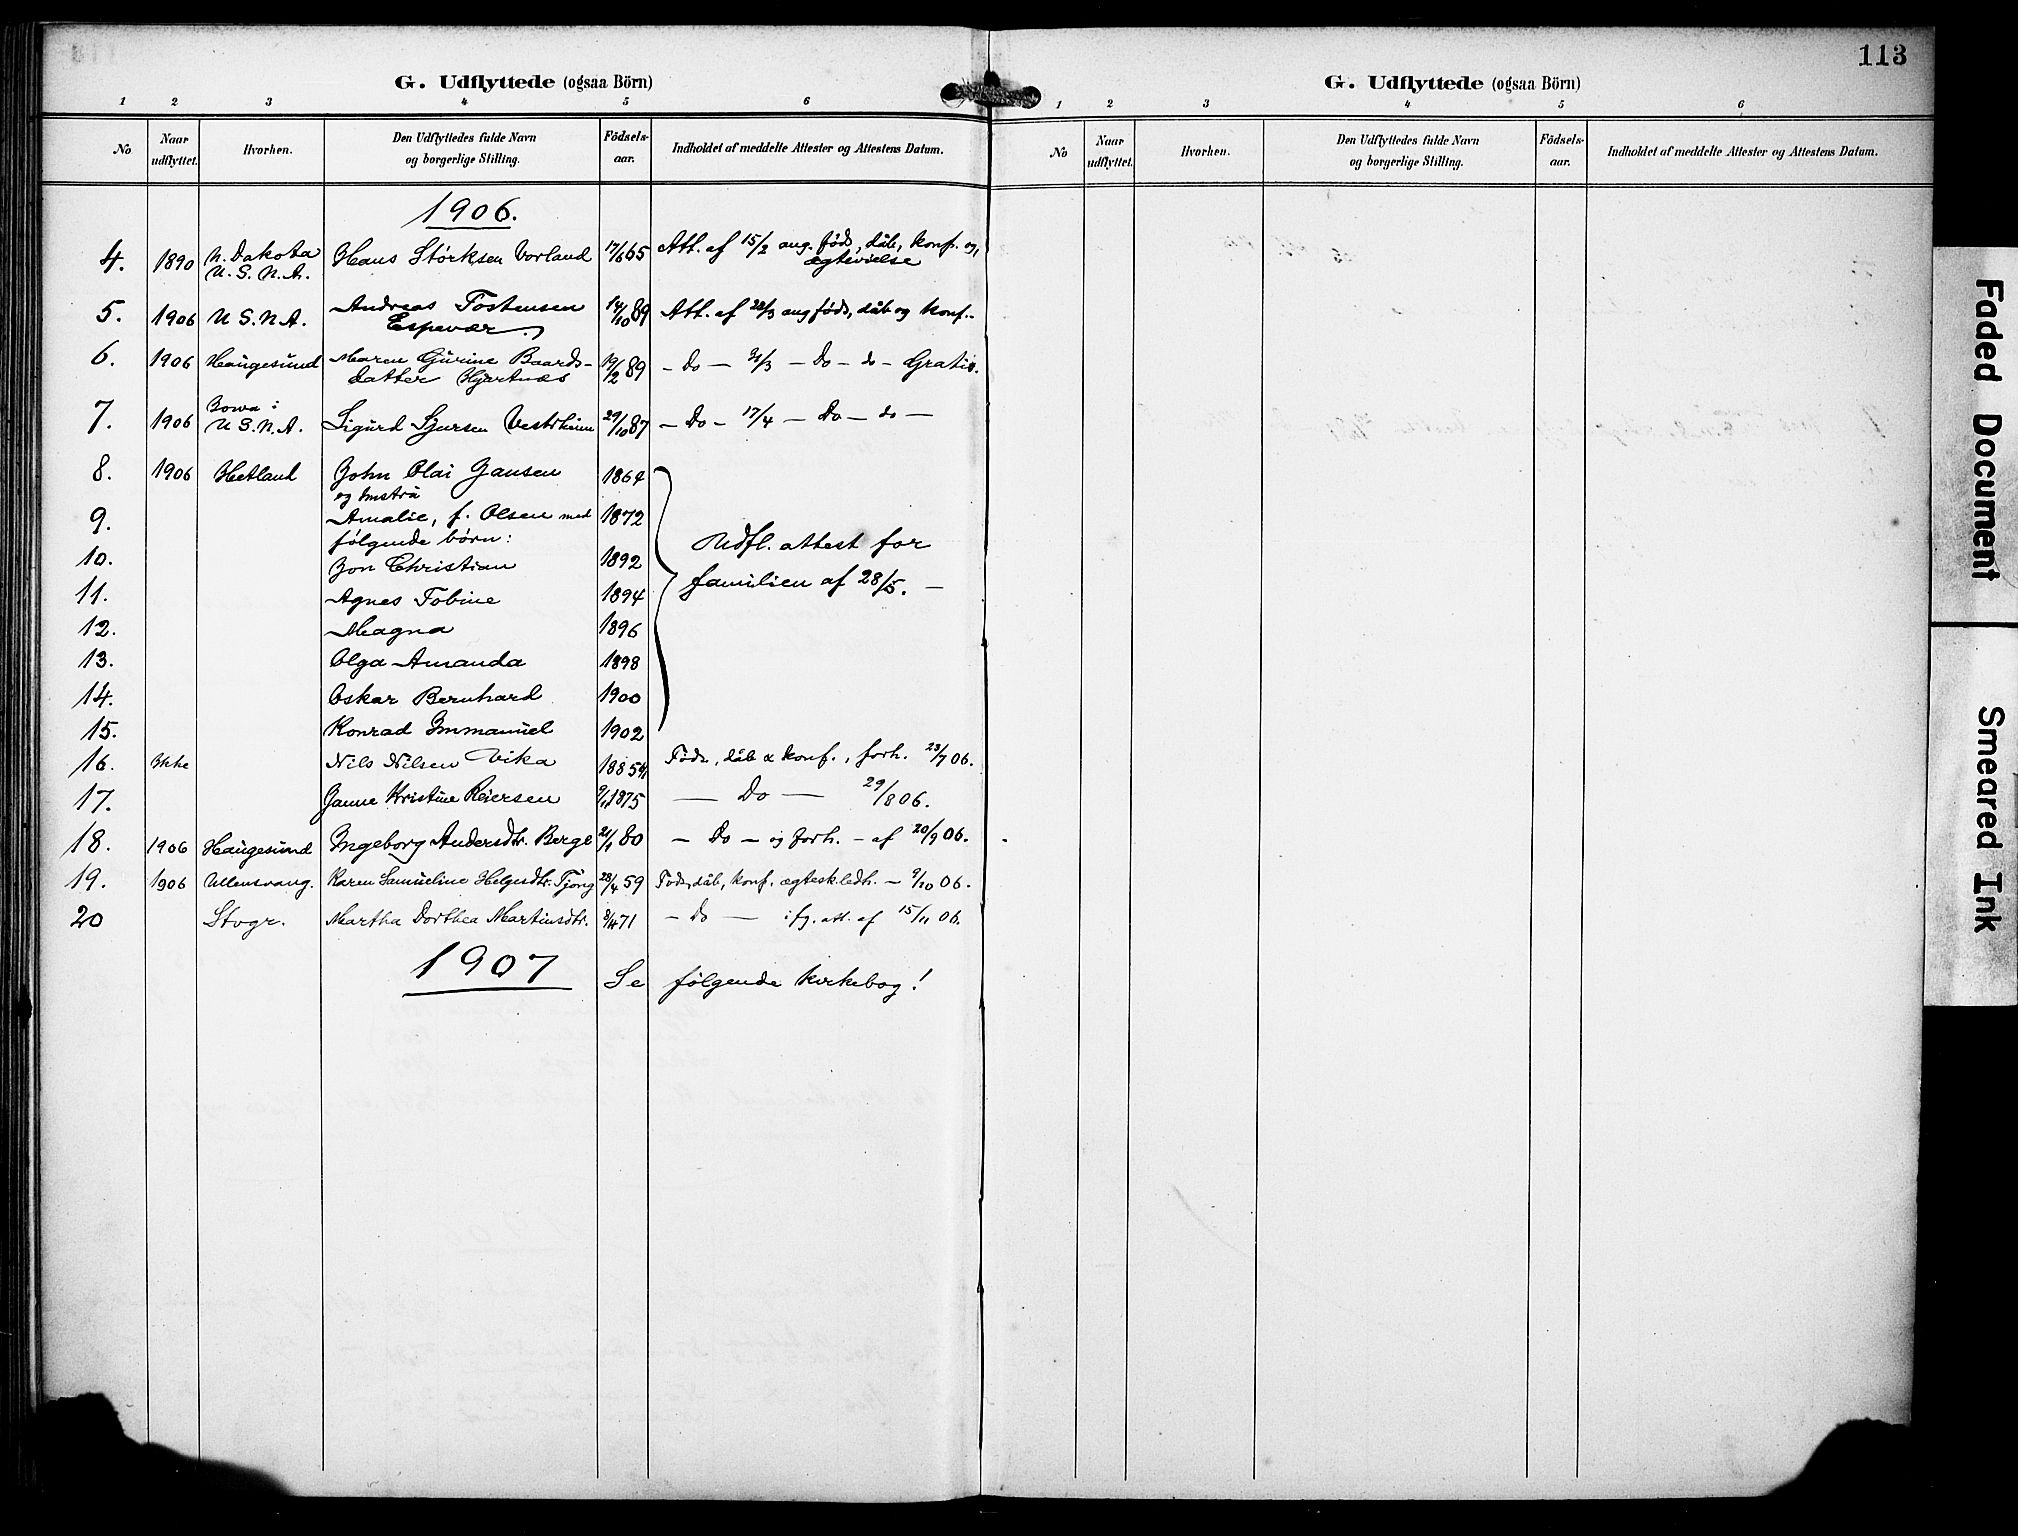 113
G. Udflyttede (ogsaa Börn)
1 2 3 4 5 6
No Naar udflyttet. Hvorhen. Den Udflyttedes fulde Navn og borgerlige Stilling. Födsels-aar. Indholdet af meddelte Attester og Attestens Datum.
1906.
4. 1890 N. Dakota U.S.N.A. Hans Størksen Vorland 17/6 65 Att. af 15/2 ang. føds, dåb, konf. og, ægtevielse
5. 1906 U S.N.A. Andreas Tostensen Espevær 14/10 89 Att. af 22/3 ang føds, dåb og konf.
6. 1906 Haugesund Maren Gurine Baards-datter Hjartnæs 19/2 89 - Do - 31/3 - Do - do - Gratis.
7. 1906 Iowa i U S.N.A. Sigurd Sjursen Vestrheim 29/10 87 - Do - 17/4 - Do - do -
8. 1906 Hetland John Olai Jansen 1864
og hustru
9. Amalie, f. Olsen med 1872
følgende børn:
Udfl. attest for
10. Jon Christian 1892
familien af 28/5. -
11. Agnes Tobine 1894
12. Magna 1896
13. Olga Amanda 1898
14. Oskar Bernhard 1900
15. Konrad Immanuel 1902
16. Ikke Nils Nilsen Vika 1885 Føds, dåb & konf., forh. 23/7 06.
17. Janne Kristine Reiersen 9/1 1875 - Do - 29/8 06.
18. 1906 Haugesund Ingeborg Andersdtr. Berge 21/1 80 - Do - og forh. - af 20/9 06.
19. 1906 Ullensvang. Karen Samueline Helgesdtr. Tjong 28/4 59 Føds, dåb, konf. ægtesk.ledh. - 9/10 06.
20 Stvgr. Martha Dorthea Martinsdtr. 71 - Do - i fg. att. af 15/11 06.
1907 Se følgende kirkebog!
G. Udflyttede (ogsaa Börn)
1 2 3 4 5 6
No Naar udflyttet. Hvorhen. Den Udflyttedes fulde Navn og borgerlige Stilling. Födsels-aar. Indholdet af meddelte Attester og Attestens Datum.
Faded Document
Smeared Ink